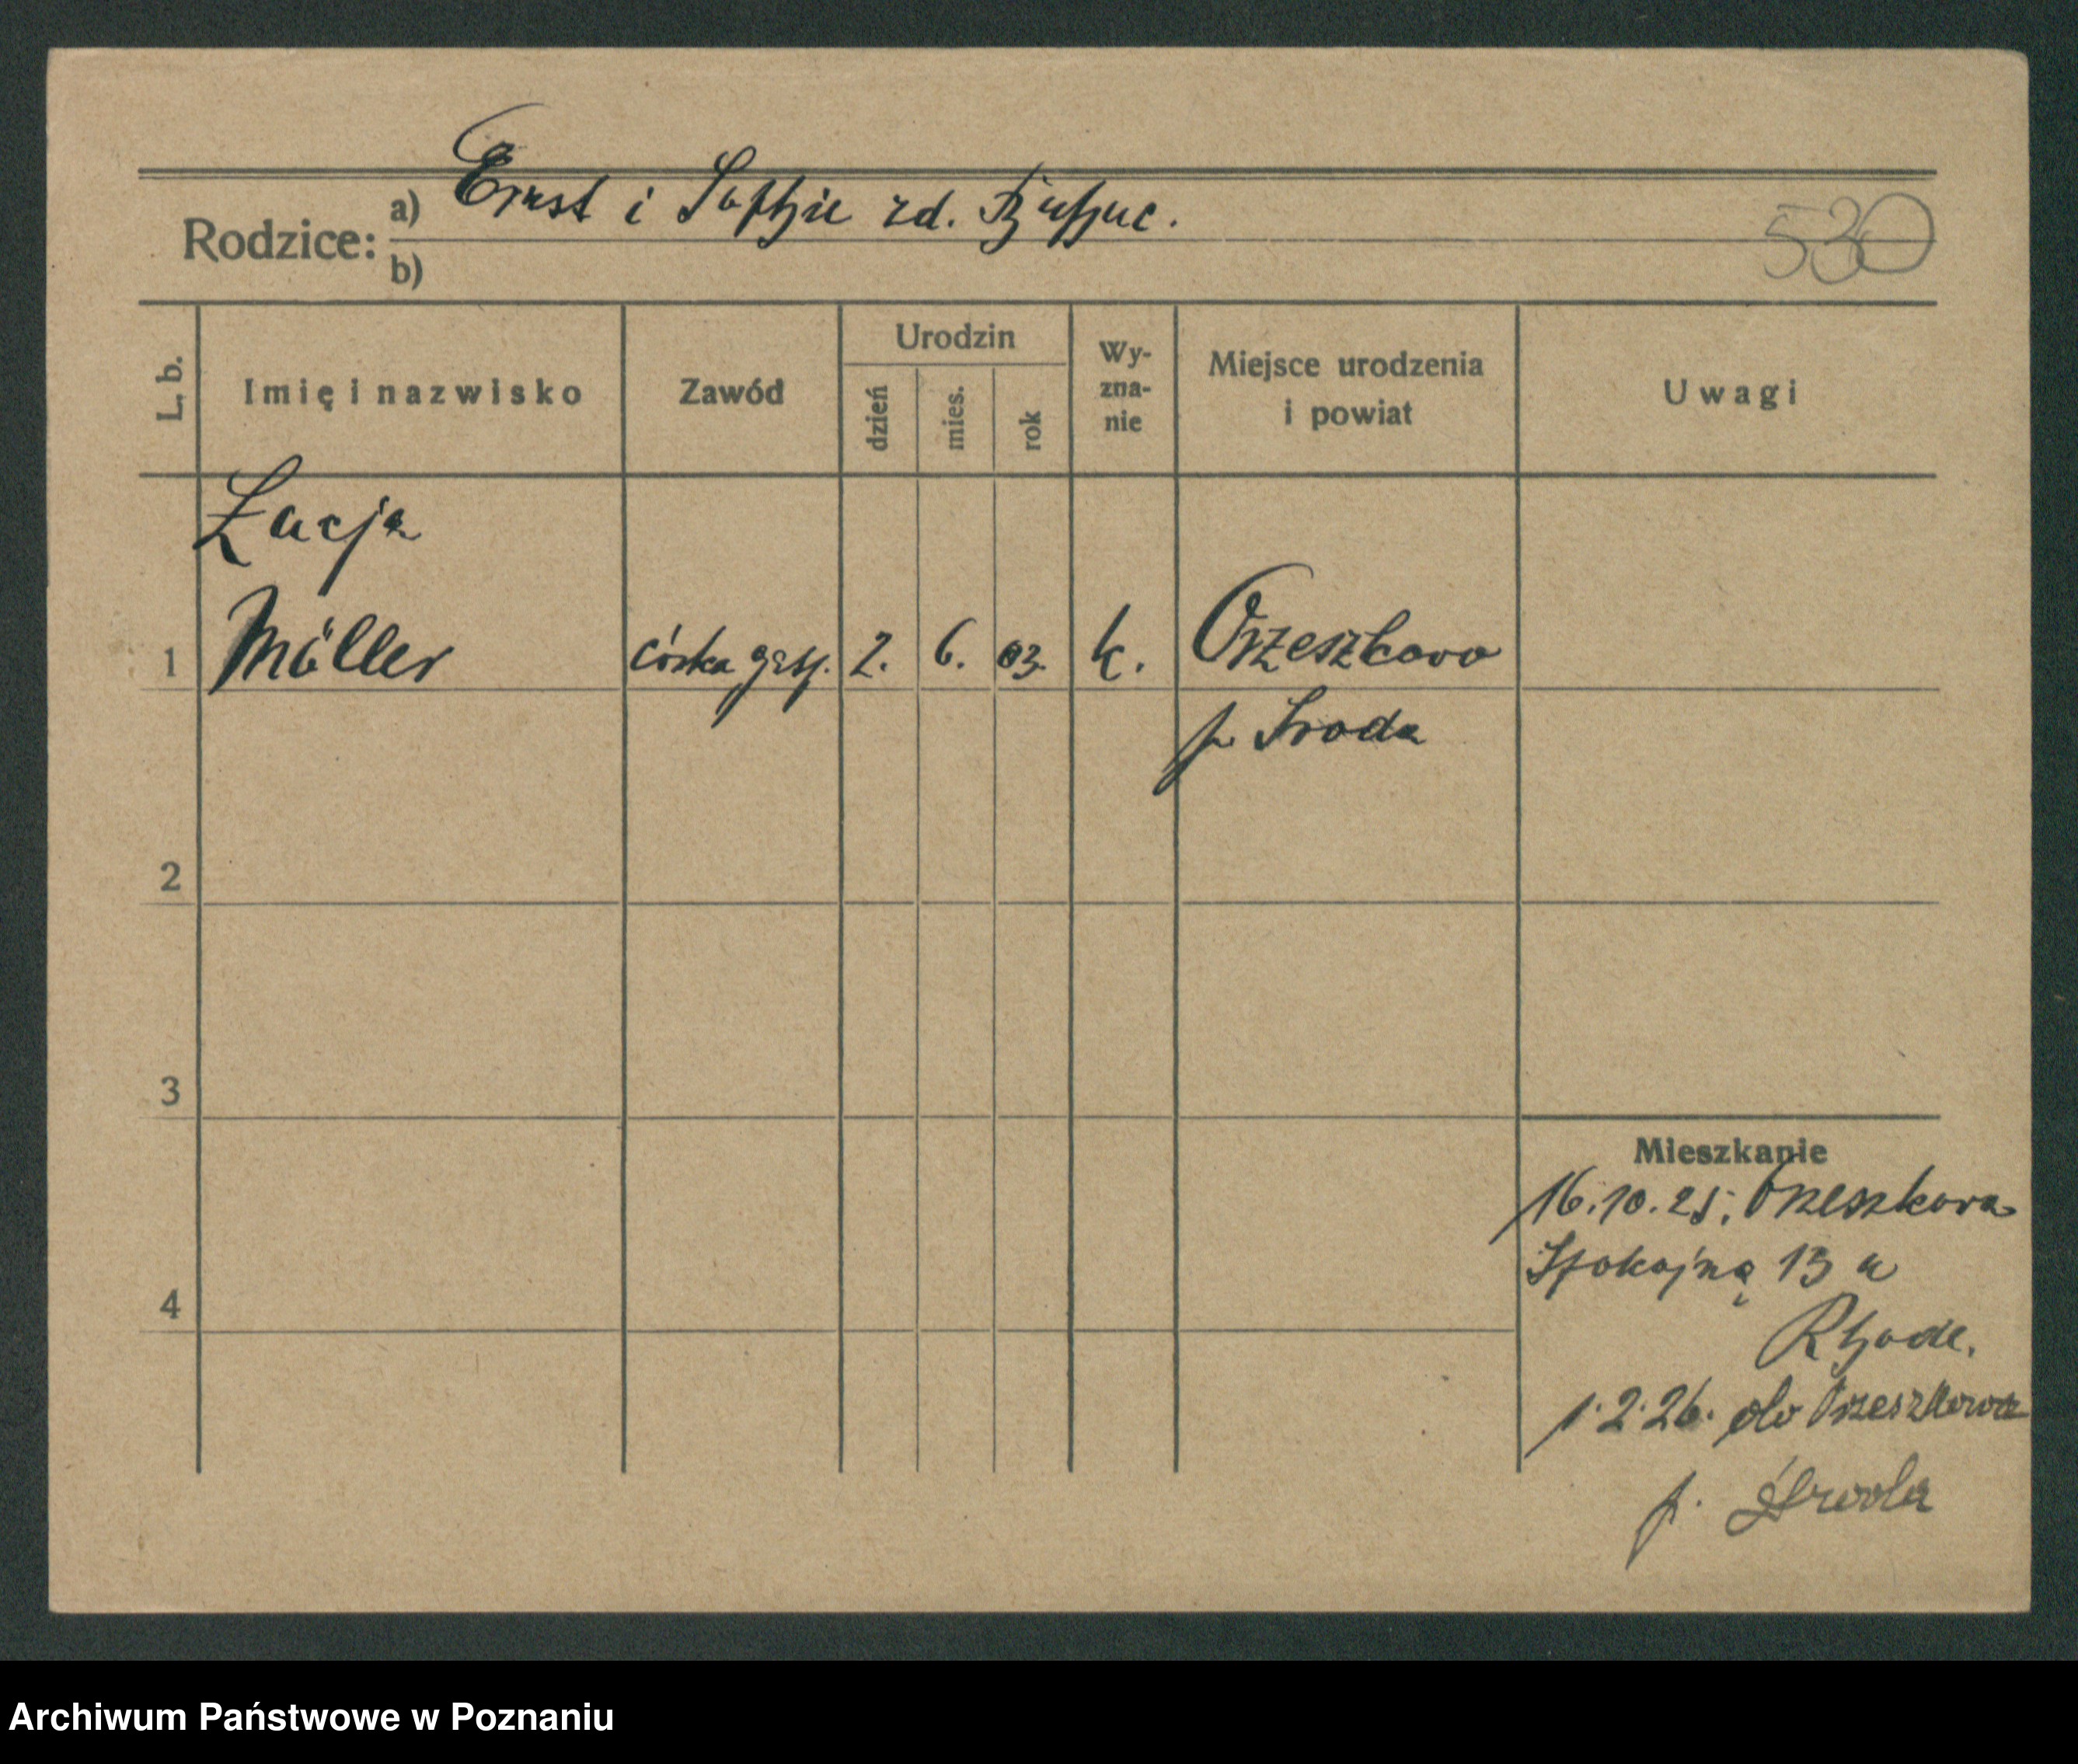 Ernst i Sophie zd.
530
Rodzice: a)
b)
L. b.
Imię i nazwisko
Zawód
Urodzin
dzień
mies.
rok
Wy-
zna-
nie
Miejsce urodzenia
i powiat
Uwagi
Łucja
1 Möller córka gosp. 2. 6. 03. k. Orzeszkowo
p. Sroda
2
3
4
Mieszkanie
16.10.25. Orzeszkowa
Spokojną 13 a
Rhode.
1.2.26. do Orzeszkowa
p. Środa
Archiwum Państwowe w Poznaniu